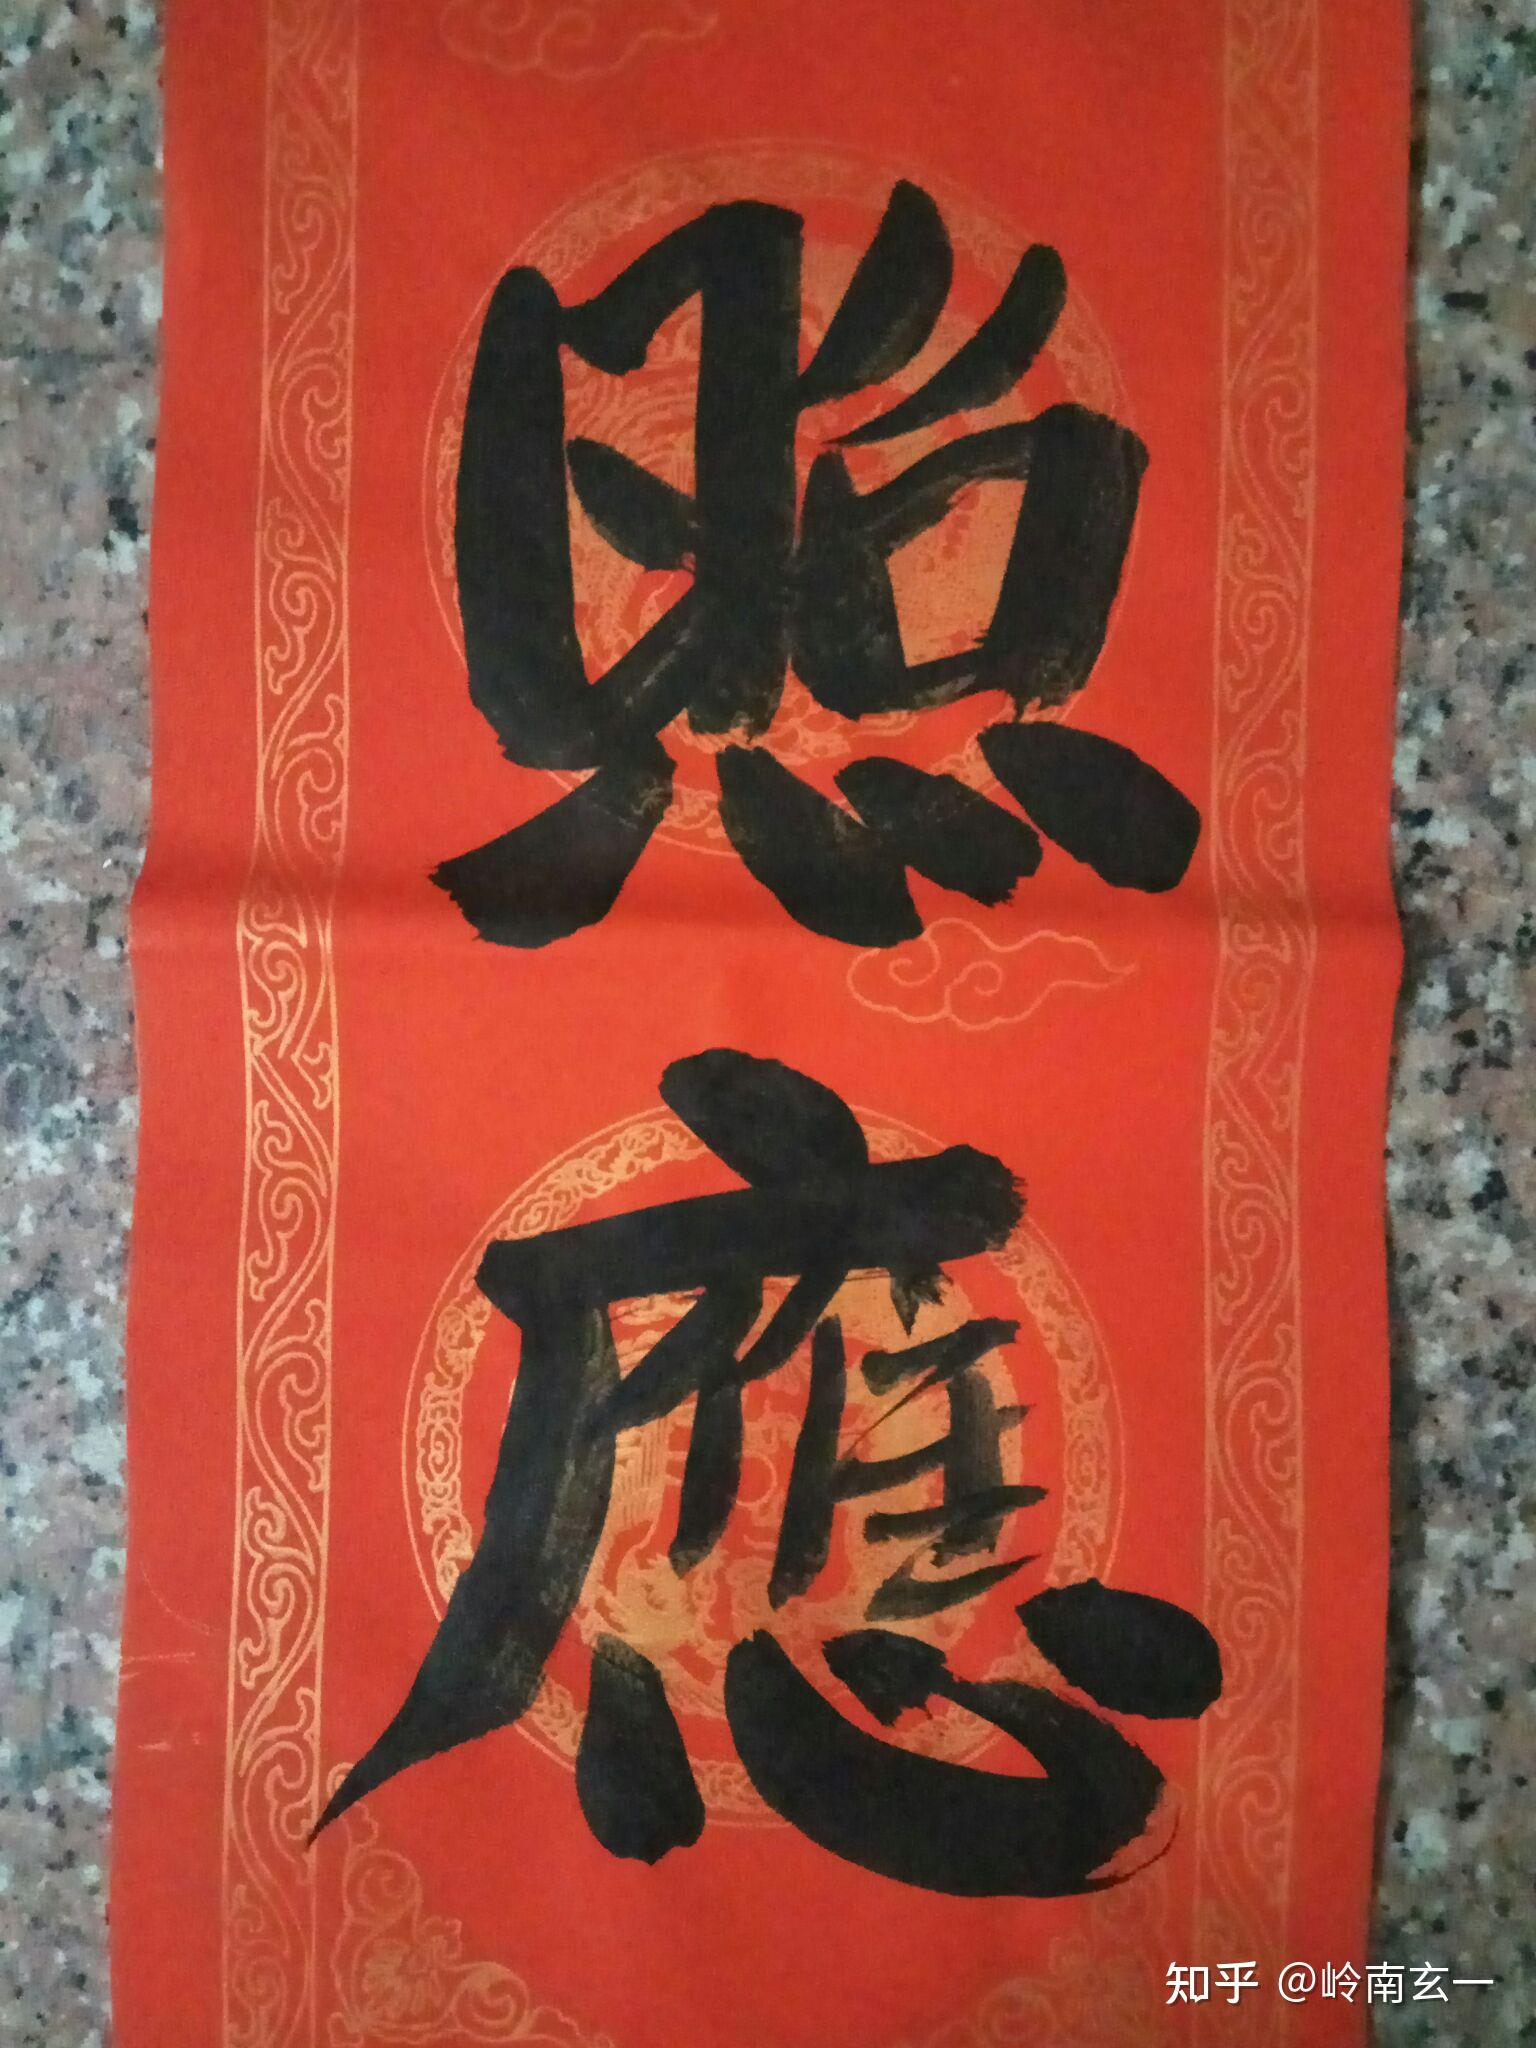 照
應
知乎 @岭南玄一